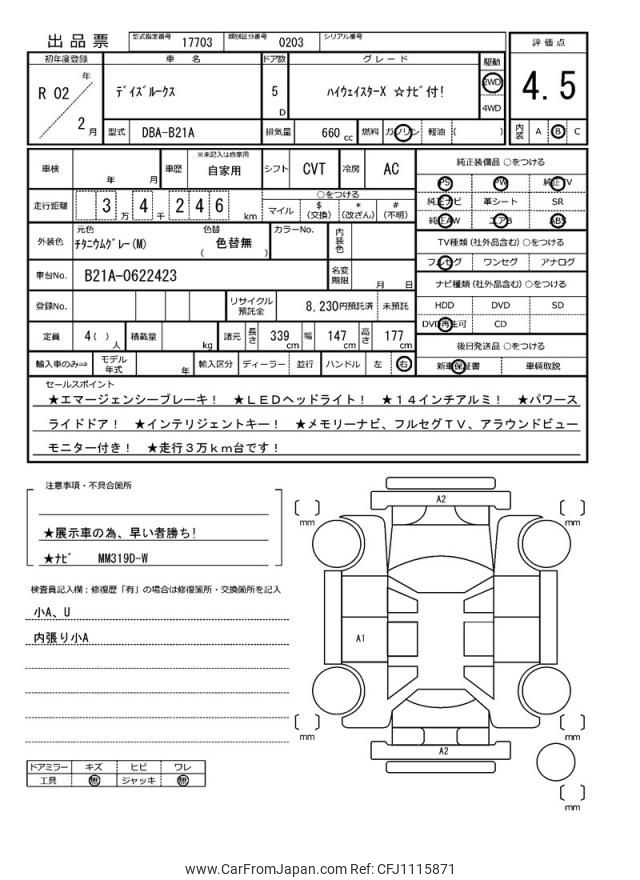 出品票 型式指定番号 17703 類別区分番号 0203 シリアル番号
初年度登録 車名 ドア数 グレード 駆動 評価点
R 02 年 2 月 ﾃﾞｲｽﾞﾙｰｸｽ 5 D ﾊｲｳｪｲｽﾀｰX ☆ﾅﾋﾞ付! 2WD 4WD 4.5
型式 DBA-B21A 排気量 660 cc 燃料 ガソリン 軽油 ( ) 内装 A B C
車検 年 月 車歴 ※未記入は自家用 自家用 シフト CVT 冷房 AC
走行距離 3 万 4 千 2 4 6 km ○をつける マイル $ (交換) * (改ざん) # (不明)
外装色 元色 ﾁﾀﾆｳﾑｸﾞﾚｰ(M) 色替 ( 色替無 ) カラーNo. 内装色
車台No. B21A-0622423 名変期限 月 日
登録No. リサイクル預託金 8,230円預託済 未預託
定員 4( )人 積載量 kg 諸元 長さ 339 cm 幅 147 cm 高さ 177 cm
輸入車のみ⇒ モデル年式 年 輸入区分 ディーラー 並行 ハンドル 左 右
純正装備品 ○をつける
PS PW 純正TV
純正ナビ 革シート SR
純正AW エアB ABS
TV種類 (社外品含む) ○をつける
フルセグ ワンセグ アナログ
ナビ種類 (社外品含む) ○をつける
HDD DVD SD
DVD再生可 CD
後日発送品 ○をつける
新車保証書 車輌取説
セールスポイント
★エマージェンシーブレーキ！ ★ＬＥＤヘッドライト！ ★１４インチアルミ！ ★パワース
ライドドア！ ★インテリジェントキー！ ★メモリーナビ、フルセグＴＶ、アラウンドビュー
モニター付き！ ★走行３万ｋｍ台です！
注意事項・不具合箇所
★展示車の為、早い者勝ち!
★ﾅﾋﾞ MM319D-W
検査員記入欄：修復歴「有」の場合は修復箇所・交換箇所を記入
小A、U
内張り小A
ドアミラー キズ ヒビ ワレ
工具 無 ジャッキ 無
A2
mm
mm
A1
mm
mm
A2
mm
www.CarFromJapan.com Ref: CFJ1115871